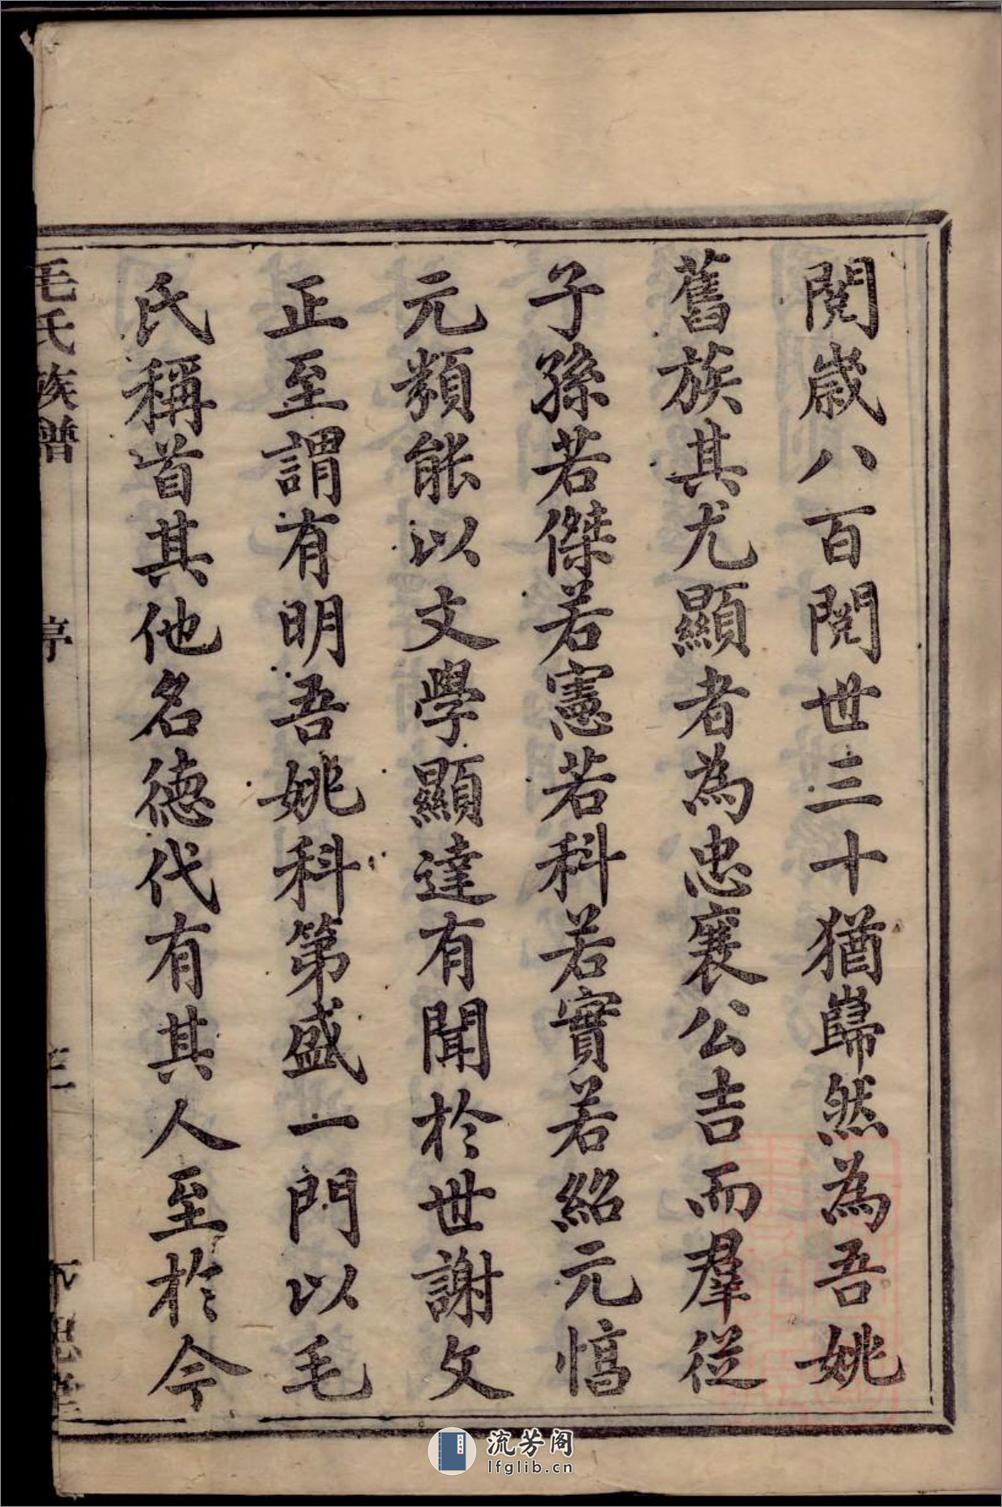 閱歲八百閱世三十猶巋然為吾姚
舊族其尤顯者為忠襄公吉而羣從
子孫若傑若憲若科若實若紹元惇
元頖能以文學顯達有聞於世謝文
正至謂有明吾姚科第盛一門以毛
氏稱首其他名德代有其人至於今
毛氏族譜
序
三
流芳阁
lfglib.cn